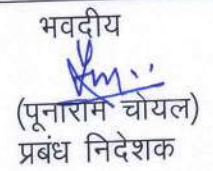 भवदीय
(पूनाराम चोयल)
प्रबंध निदेशक